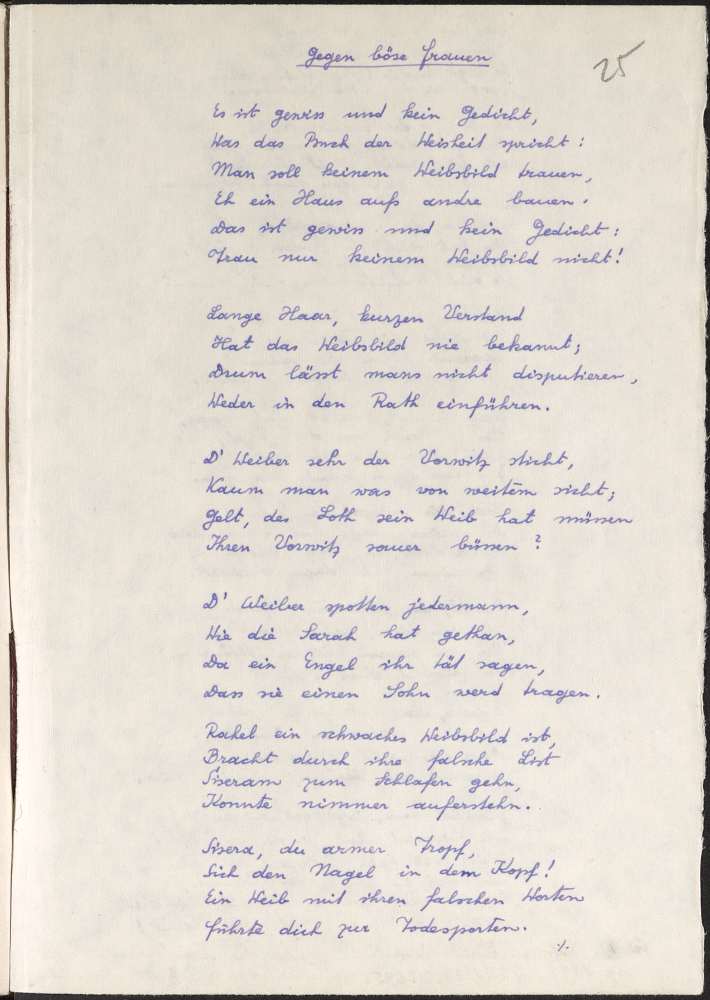 Gegen böse Frauen
25
Es ist gewiss und kein Gedicht,
Was das Buch der Weisheit spricht:
Man soll keinem Weibsbild trauen,
Eh ein Haus aufs andre bauen.
Das ist gewiss und kein Gedicht:
Trau nur keinem Weibsbild nicht!
Lange Haar, kurzen Verstand
Hat das Weibsbild nie bekannt;
Drum lässt mans nicht disputieren,
Weder in den Rath einführen.
D' Weiber sehr der Vorwitz sticht,
Kaum man was von weitem sicht;
Gelt, des Loth sein Weib hat müssen
Ihren Vorwitz sauer büssen?
D' Weiber spotten jedermann,
Wie die Sarah hat gethan,
Da ein Engel ihr tät sagen,
Dass sie einen Sohn werd tragen.
Rahel ein schwaches Weibsbild ist,
Bracht durch ihre falsche List
Siseram zum Schlafen gehn,
Konnte nimmer auferstehn.
Sisera, du armer Tropf,
Sich den Nagel in dem Kopf!
Ein Weib mit ihren falschen Worten
führte dich zur Todesporten.
./.